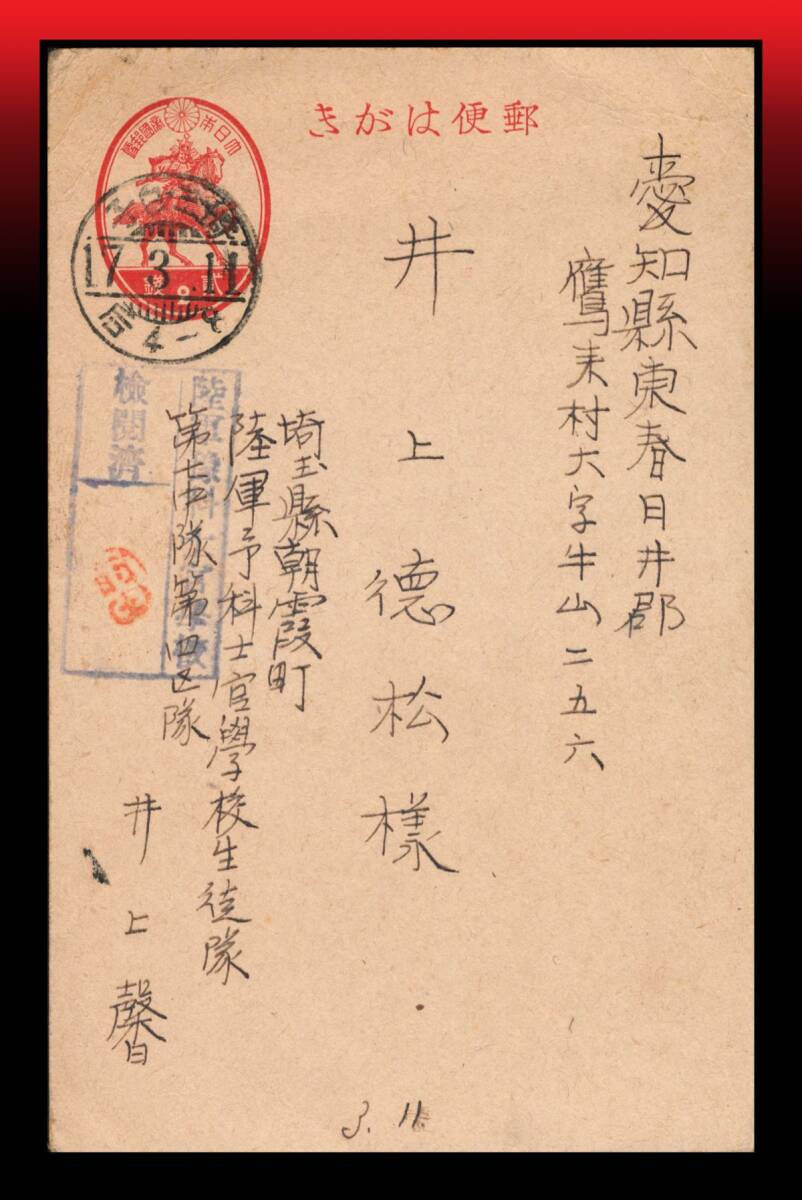 郵便はがき
大日本帝國郵便
貳銭
17.3.11
前4-8
愛知縣東春日井郡
鷹来村大字牛山二五六
井上德松様
埼玉縣朝霞町
陸軍予科士官學校生徒隊
第七中隊第四区隊
井上馨
陸軍予科士官學校
檢閲濟
3.11.